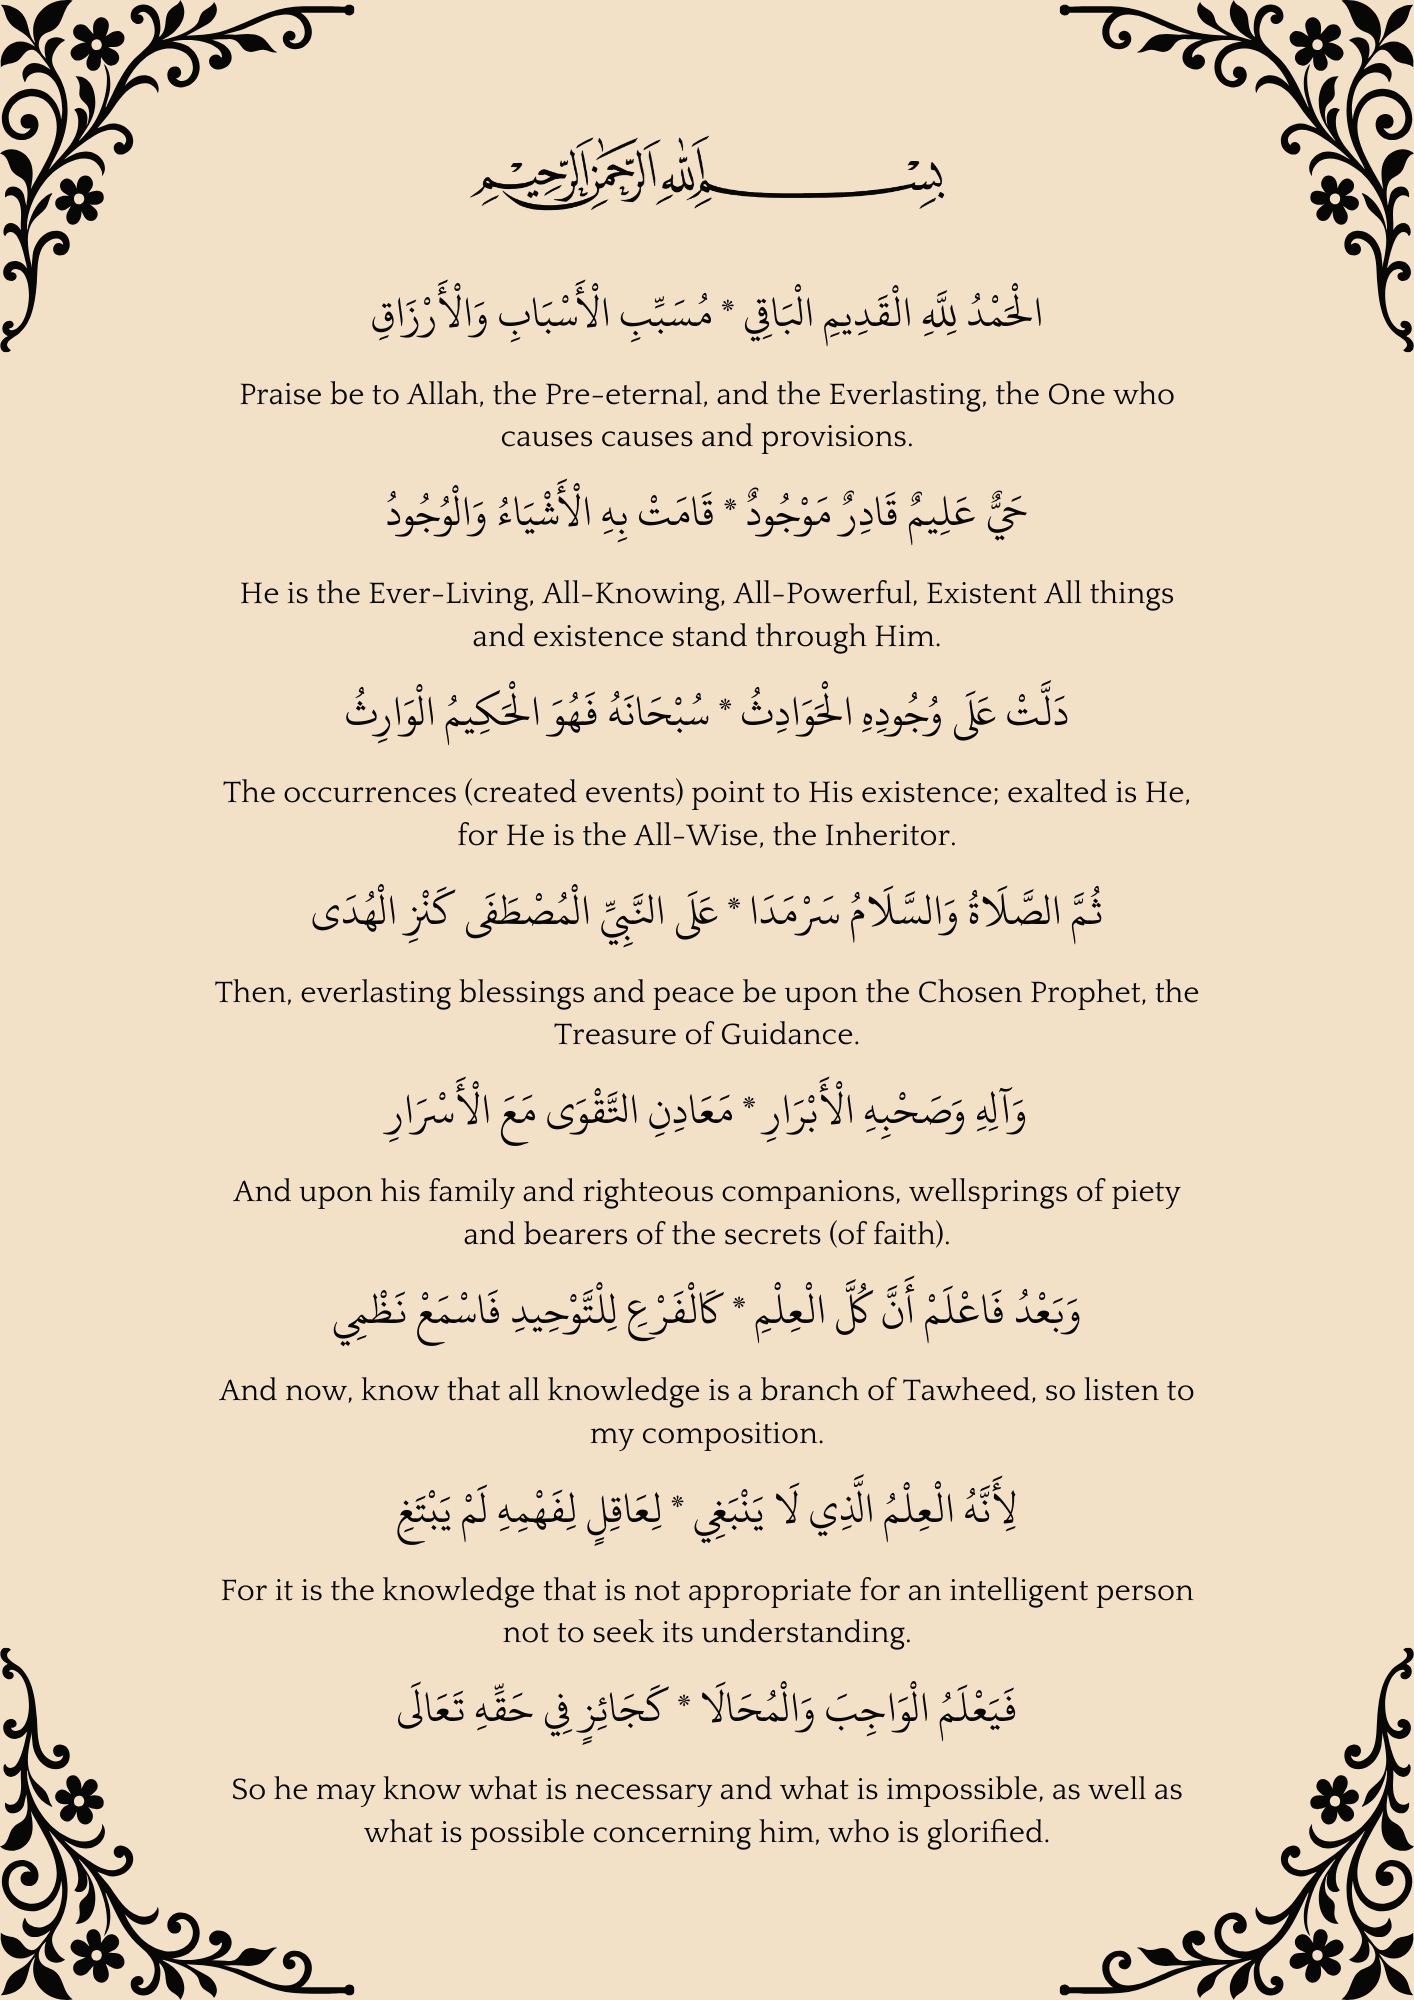 بِسْمِ اللهِ الرَّحْمٰنِ الرَّحِيمِ
الْحَمْدُ لِلَّهِ الْقَدِيمِ الْبَاقِي * مُسَبِّبِ الْأَسْبَابِ وَالْأَرْزَاقِ
Praise be to Allah, the Pre-eternal, and the Everlasting, the One who
causes causes and provisions.
حَيٌّ عَلِيمٌ قَادِرٌ مَوْجُودٌ * قَامَتْ بِهِ الْأَشْيَاءُ وَالْوُجُودُ
He is the Ever-Living, All-Knowing, All-Powerful, Existent All things
and existence stand through Him.
دَلَّتْ عَلَى وُجُودِهِ الْحَوَادِثُ * سُبْحَانَهُ فَهُوَ الْحَكِيمُ الْوَارِثُ
The occurrences (created events) point to His existence; exalted is He,
for He is the All-Wise, the Inheritor.
ثُمَّ الصَّلَاةُ وَالسَّلَامُ سَرْمَدَا * عَلَى النَّبِيِّ الْمُصْطَفَى كَنْزِ الْهُدَى
Then, everlasting blessings and peace be upon the Chosen Prophet, the
Treasure of Guidance.
وَآلِهِ وَصَحْبِهِ الْأَبْرَارِ * مَعَادِنِ التَّقْوَى مَعَ الْأَسْرَارِ
And upon his family and righteous companions, wellsprings of piety
and bearers of the secrets (of faith).
وَبَعْدُ فَاعْلَمْ أَنَّ كُلَّ الْعِلْمِ * كَالْفَرْعِ لِلتَّوْحِيدِ فَاسْمَعْ نَظْمِي
And now, know that all knowledge is a branch of Tawheed, so listen to
my composition.
لِأَنَّهُ الْعِلْمُ الَّذِي لَا يَنْبَغِي * لِعَاقِلٍ لِفَهْمِهِ لَمْ يَبْتَغِ
For it is the knowledge that is not appropriate for an intelligent person
not to seek its understanding.
فَيَعْلَمُ الْوَاجِبَ وَالْمُحَالَا * كَجَائِزٍ فِي حَقِّهِ تَعَالَى
So he may know what is necessary and what is impossible, as well as
what is possible concerning him, who is glorified.